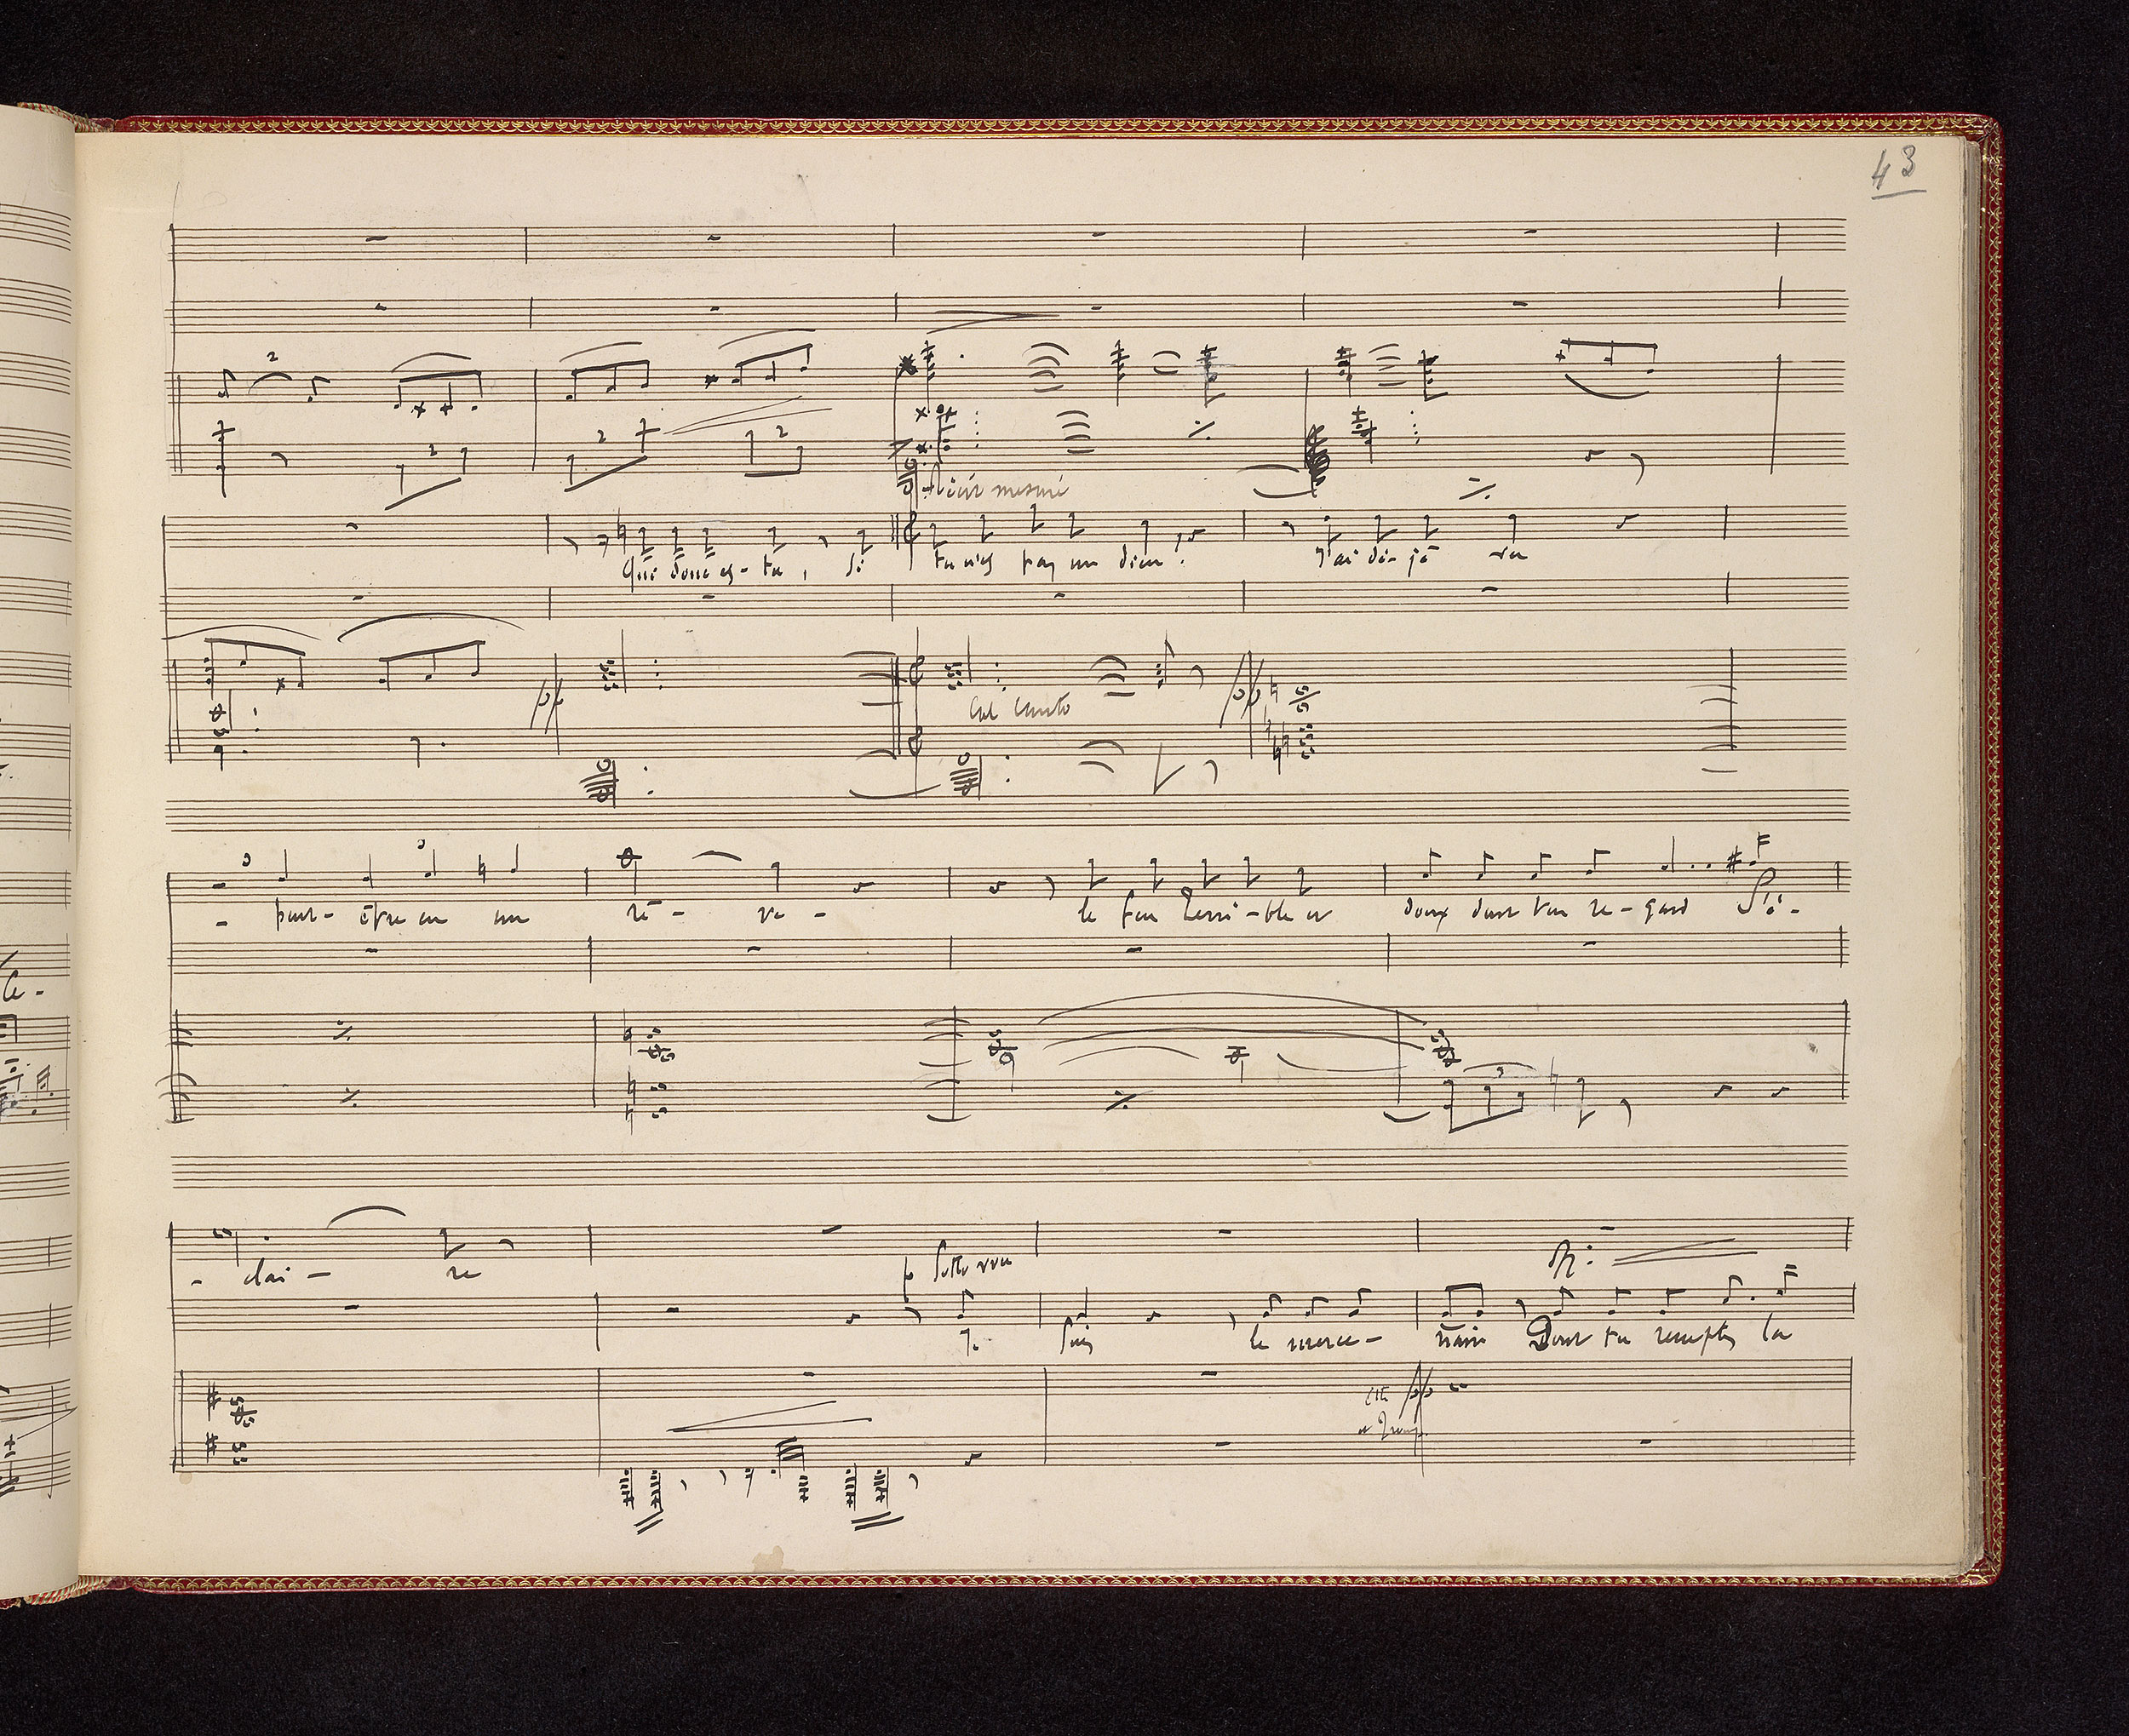 43
2
2
2
2
Récit mesuré
Qui donc es-tu, si tu n'es pas un dieu! J'ai dé-jà vu
pp
Col canto
pp
3
3
- peut-être en un rê-ve- le feu terri-ble et doux dont ton re-gard s'é-
3
- clai- re
Sotto voce
Je suis le merce- naire Dont tu remplis la
pp